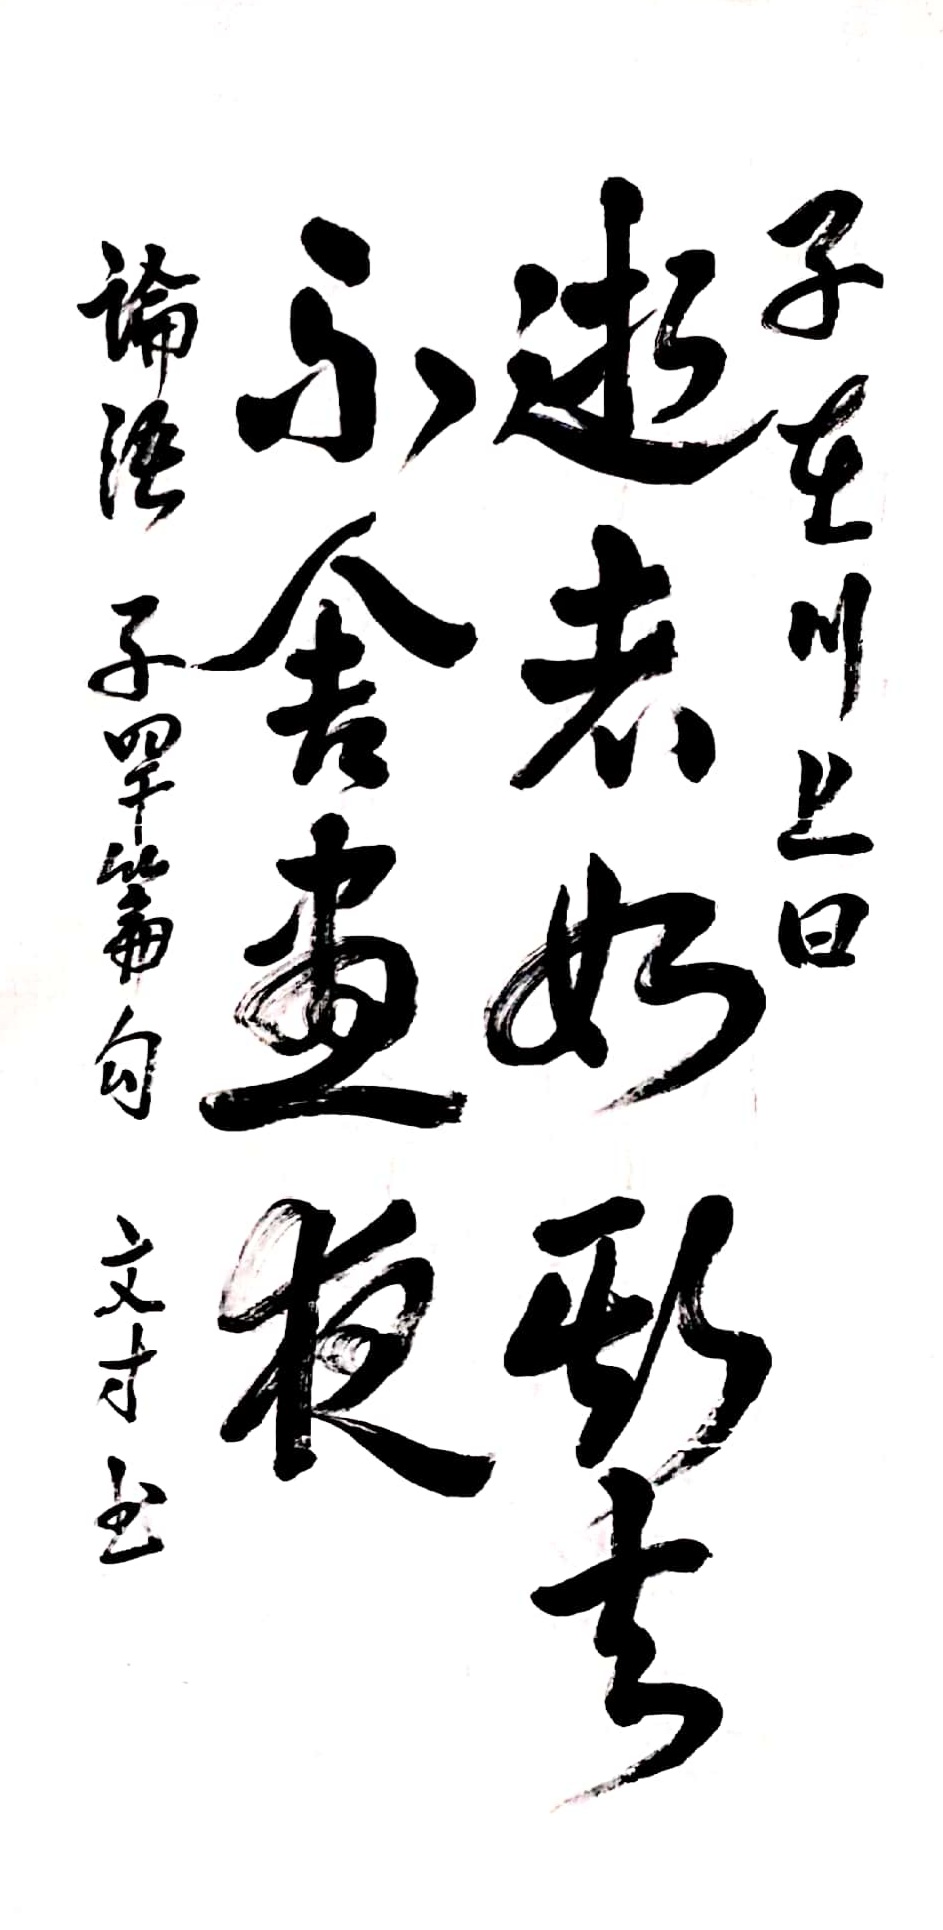 子在川上曰
逝者如斯夫
不舍昼夜
論語 子罕篇句 文才书